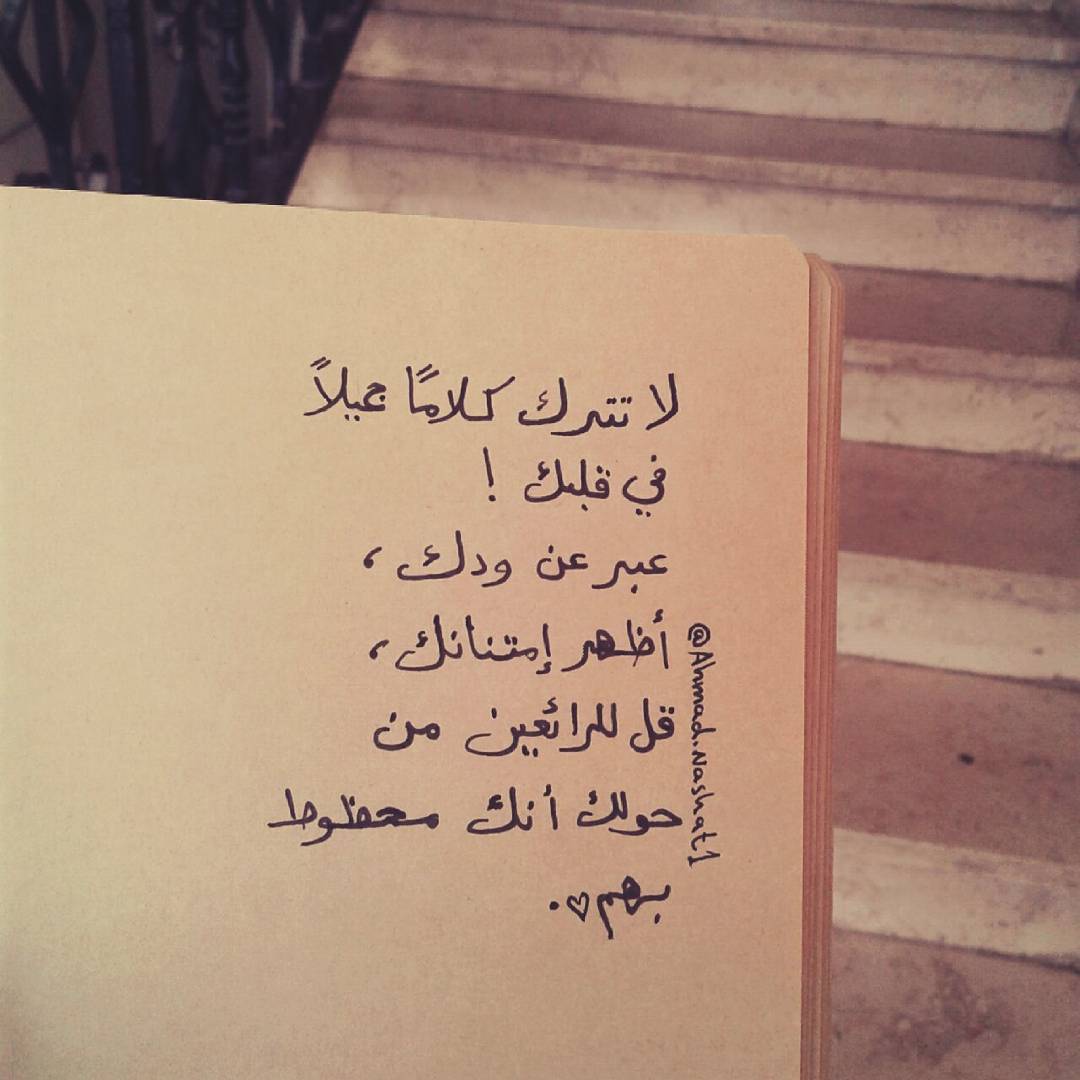 لا تترك كلامًا جميلاً
في قلبك !
عبر عن ودك ،
أظهر إمتنانك ،
قل للرائعين من
حولك أنك محظوظ
بهم♡.
@Ahmad.Nashat1